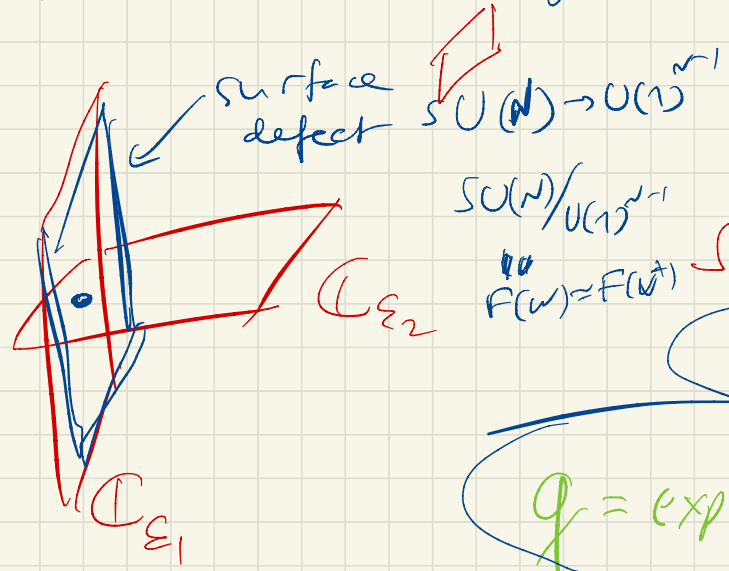 surface
defect
SU(N) → U(1)^{N-1}
SU(N)/U(1)^{N-1}
ℂ_{ε_2}
ℂ_{ε_1}
q = exp